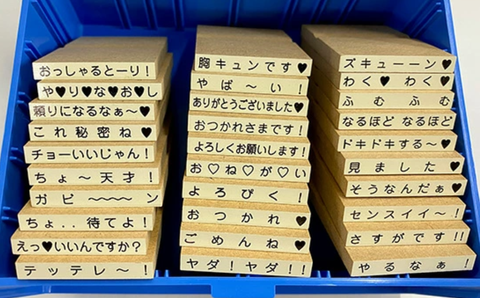 おっしゃるとーり！
や♥り♥な♥お♥し
頼りになるなぁ〜♥
これ秘密ね♥
チョーいいじゃん！
ちょ〜天才！
ガビ〜〜〜ン
ちょ..待てよ！
えっ♥いいんですか？
テッテレ〜！
胸キュンです♥
やば〜い！
ありがとうございました♥
おつかれさまです！
よろしくお願いします！
お♡ね♡が♡い
よろぴく！
おつかれ♥
ごめんね♥
ヤダ！ヤダ！！
ズキューーン♥
わく♥わく♥
ふむふむ
なるほどなるほど
ドキドキする〜♥
見ました♥
そうなんだぁ♥
センスイイ〜！
さすがです!!
やるなぁ！